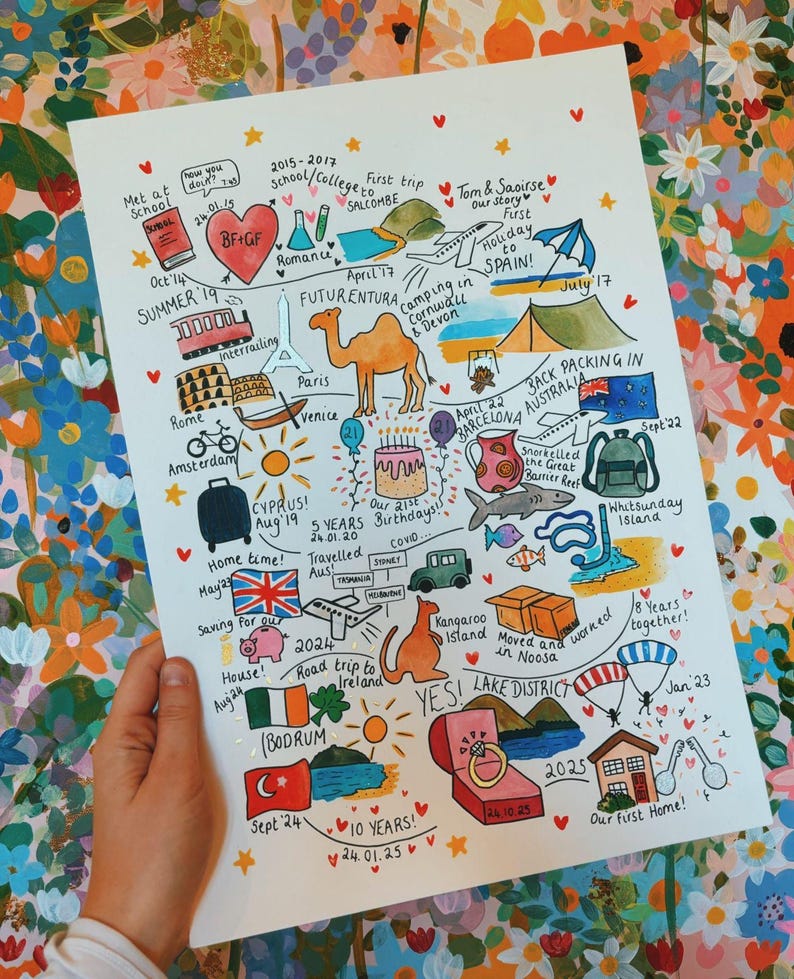 Met at
School
SCHOOL
Oct'14
how you
doin? 7:45
24.01.15
BF+GF
2015-2017
School/College
Romance
First trip
to
SALCOMBE
April'17
Tom & Saoirse
our story
First
Holiday
to
SPAIN!
July'17
SUMMER'19
Interrailing
Paris
Rome
Venice
Amsterdam
CYPRUS!
Aug'19
FUTURENTURA
Camping in
Cornwall
& Devon
21
21
Our 21st
Birthdays!
5 YEARS
24.01.20
COVID...
April'22
BARCELONA
BACK PACKING IN
AUSTRALIA
Sept'22
Snorkelled
the Great
Barrier Reef
Whitsunday
Island
Home time!
May'23
Travelled
Aus!
SYDNEY
TASMANIA
MELBOURNE
Kangaroo
Island
Moved and worked
in Noosa
8 Years
together!
Jan'23
Saving for our
House!
2024
Road trip to
Ireland
Aug'24
BODRUM
Sept'24
10 YEARS!
24.01.25
YES!
LAKE DISTRICT
24.10.25
2025
Our first Home!